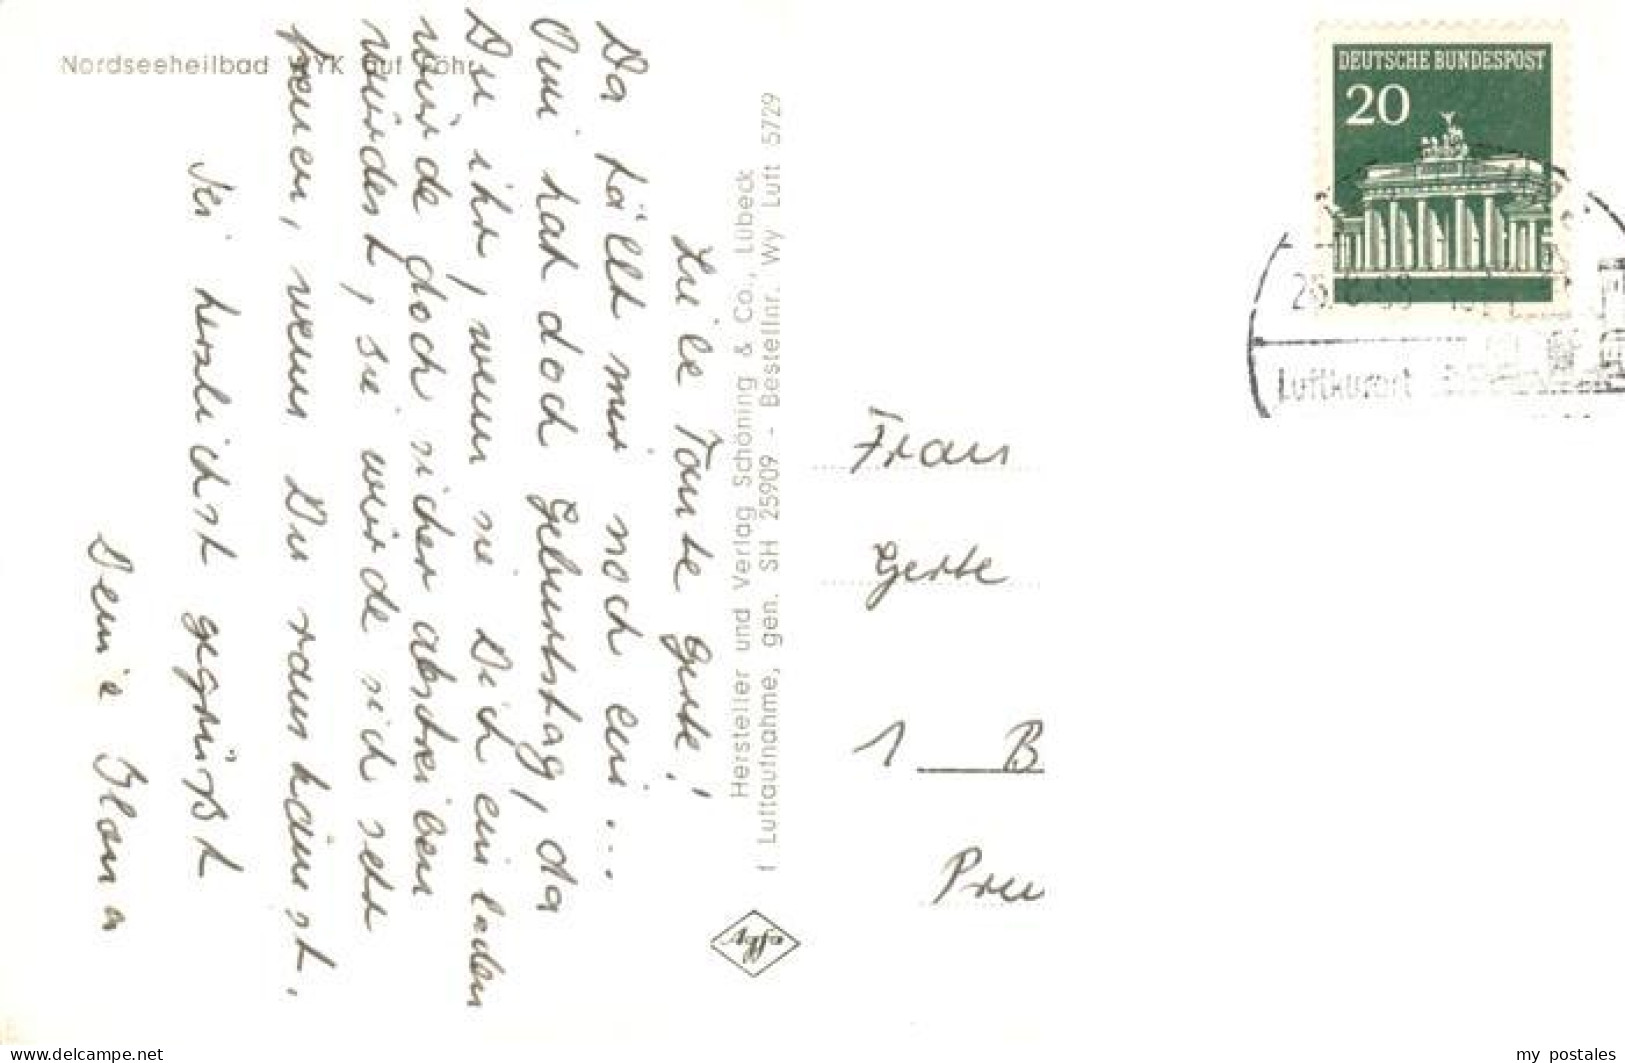 Nordseeheilbad WYK auf Föhr
Liebe Tante Gerte!
Da fällt mir noch ein...
Omi hat doch Geburtstag, da
Du ihr, wenn sie Dich einladen
würde doch sicher abschreiben
würdest, sie würde sich sehr
freuen, wenn Du raus kämst.
Sei herzlichst gegrüßt
Deine
Hersteller und Verlag Schöning & Co., Lübeck
Luftaufnahme, gen. SH 25909 - Bestellnr. Wy Luft 5729
DEUTSCHE BUNDESPOST
20
Luftkurort
Frau
Gerte
1 B
Preu
delcampe.net
my_postales